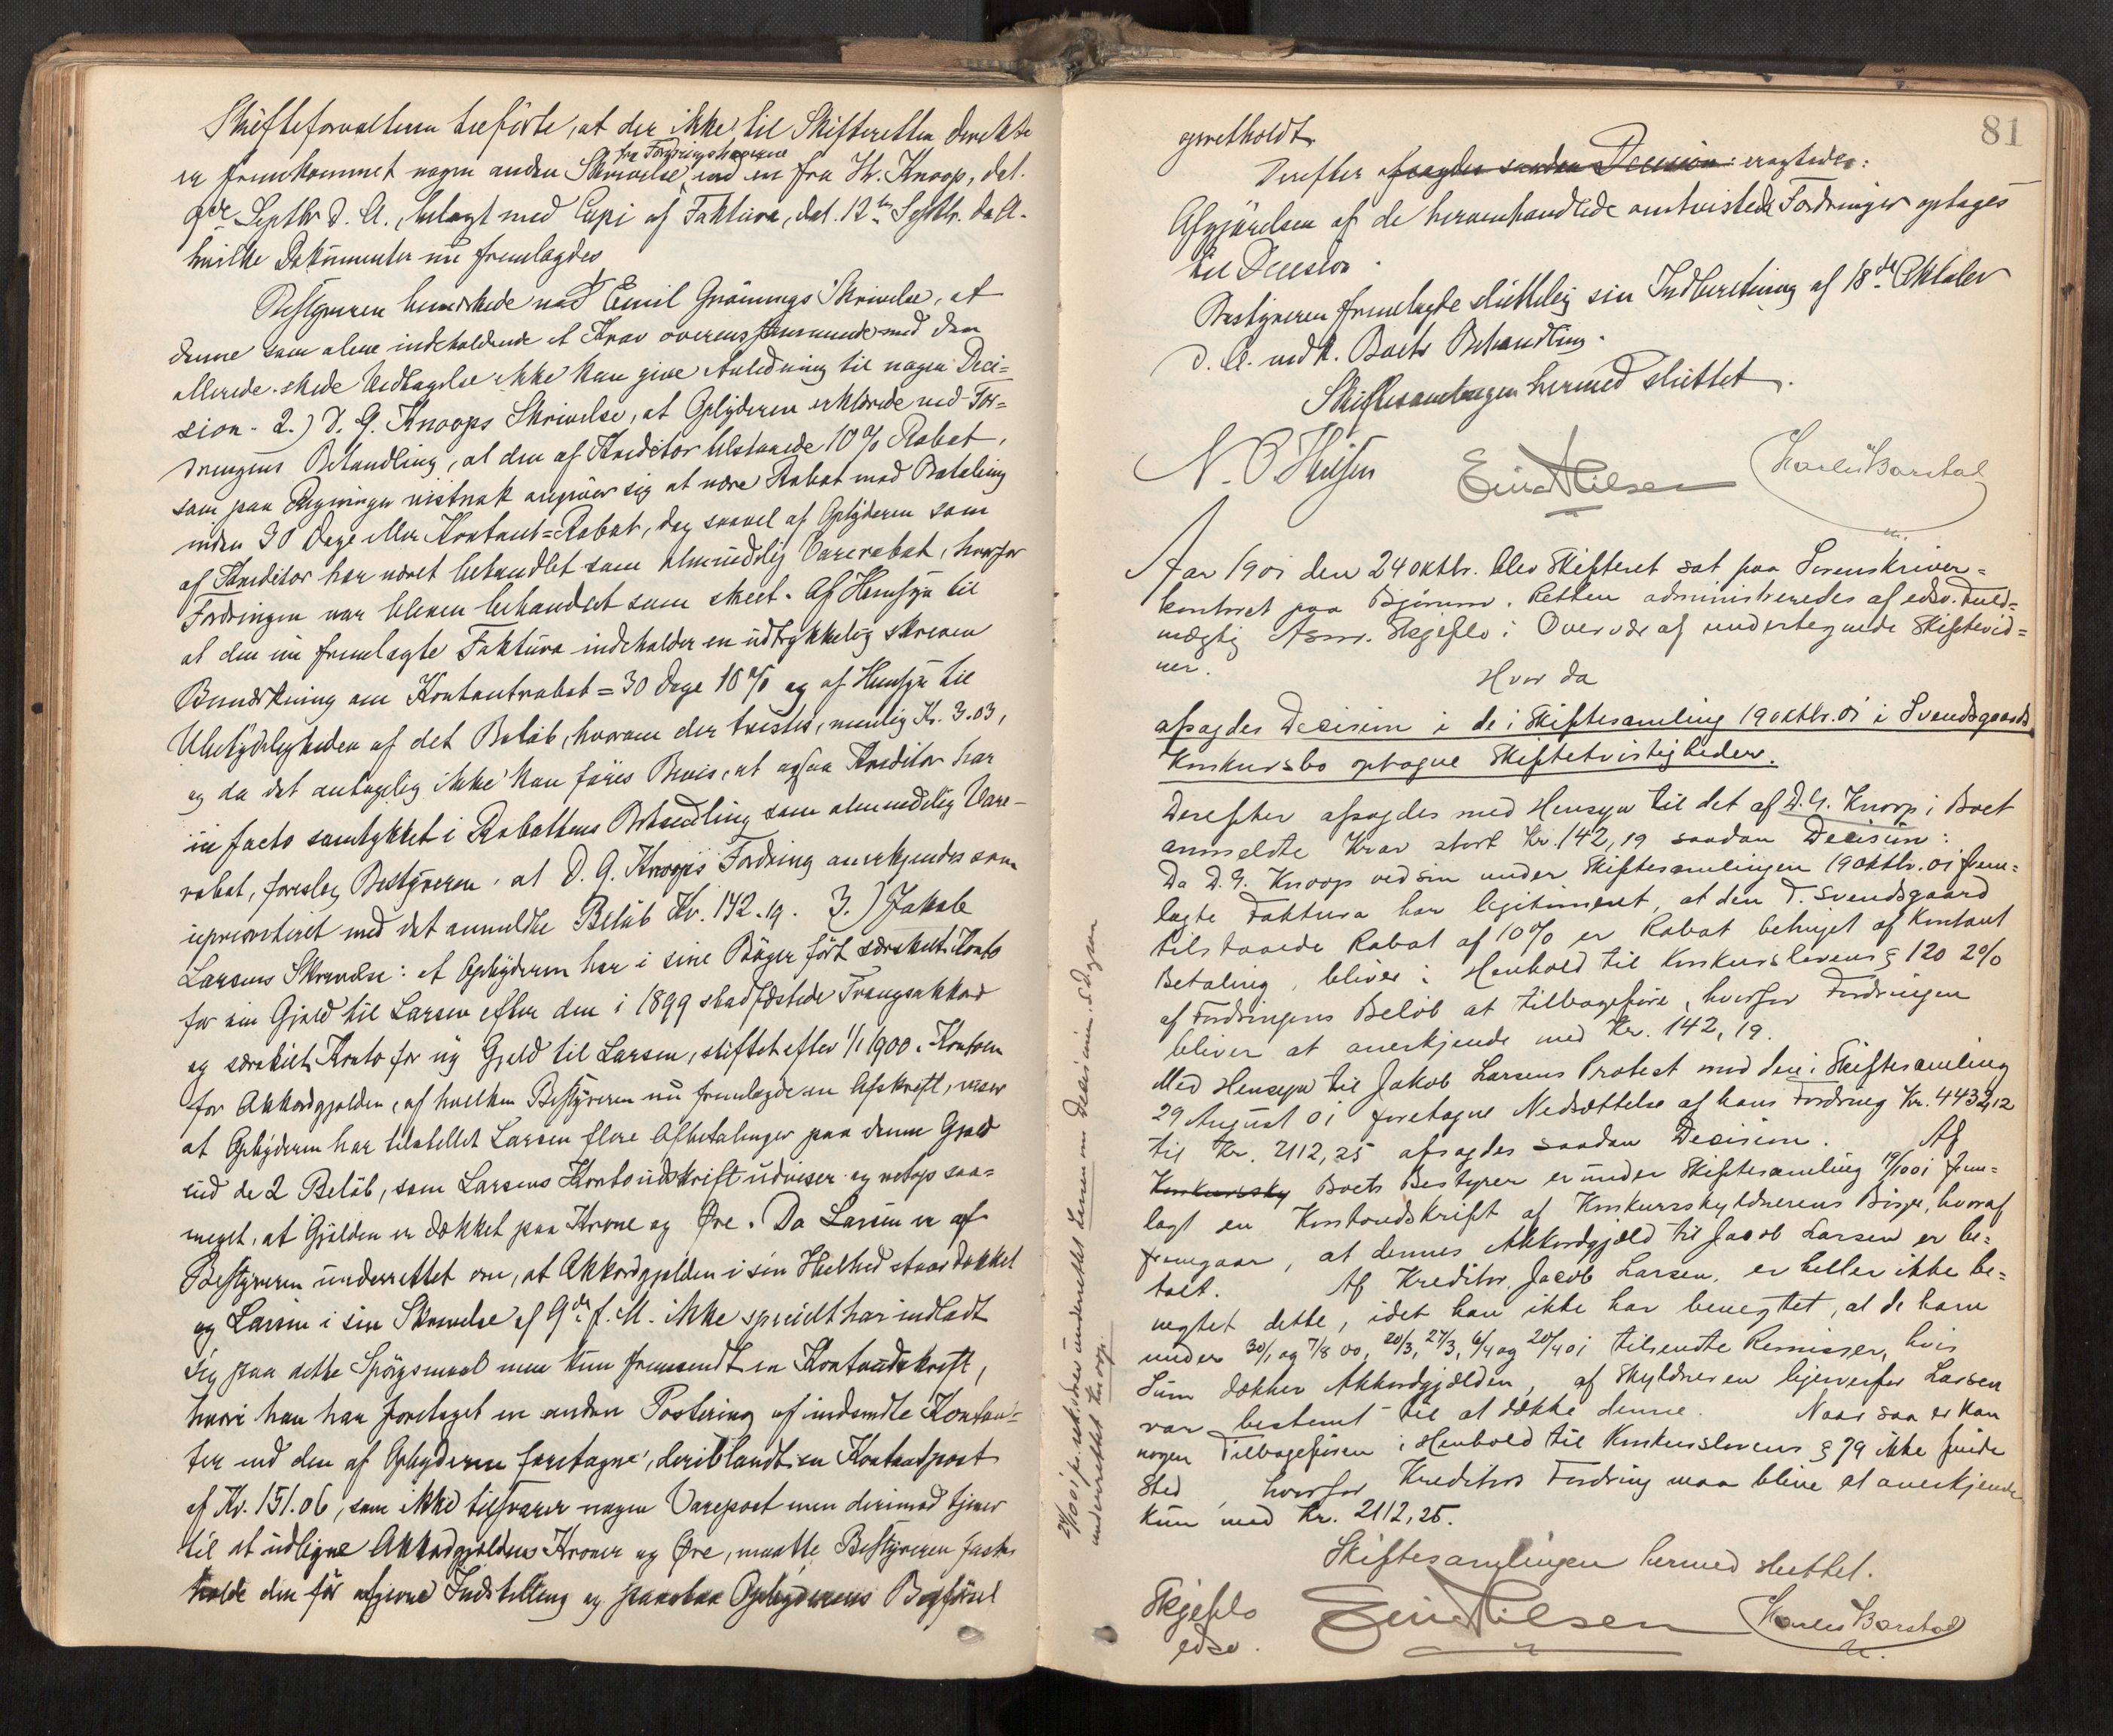 Skifteforvalteren tilførte, at der ikke til Skifteretten direkte
er fremkommet nogen anden Skrivelse fra Fordringshaverne end en fra Hr. Knoop, dat.
9de Septbr d. A., belagt med Copi af Faktura, dat. 12te Septbr. d. A.
hvilke Dokumenter nu fremlagdes
Bestyreren bemærkede ved Emil Grönnings Skrivelse, at
denne som alene indeholdende et Krav overensstemmende med den
allerede skede Vedtagelse ikke kan give Anledning til nogen Deci=
sion. 2.) D. G. Knoops Skrivelse, at Opbyderen erklærede ved For=
dringens Behandling, at den af Kreditor tilstaaede 10% Rabat,
som paa Regninger vistnok angiver sig at være Rabat mod Betaling
inden 30 Dage eller Kontant=Rabat, dog saavel af Opbyderen som
af Kreditor har været behandlet som almindelig Varerabat, hvorfor
Fordringen var bleven behandlet som skeet. Af Hensyn til
at den nu fremlagte Faktura indeholder en udtrykkelig skreven
Bemærkning om Kontantrabat = 30 Dage 10% og af Hensyn til
Ubetydeligheden af det Beløb, hvorom der tvistes, nemlig Kr. 3.03,
og da det antagelig ikke kan føres Bevis, at ogsaa Kreditor har
in facto samtykket i Rabattens Behandling som almindelig Vare-
rabat, foreslog Bestyreren, at D. G. Knoops Fordring anerkjendes som
uprioriteret med det anmeldte Beløb Kr. 142.19. 3.) Jakob
Larsens Skrivelse: at Opbyderen har i sine Bøger ført særskilt Konto
for sin Gjæld til Larsen efter den i 1899 stadfæstede Tvangsakkord
og særskilt Konto for ny Gjeld til Larsen, stiftet efter 1/1 1900. Kontoen
for Akkordgjælden, af hvilken Bestyreren nu fremlagde en Afskrift, viser
at Opbyderen har tilstillet Larsen flere Afbetalinger paa denne Gjæld
end de 2 Beløb, som Larsens Kontoudskrift udviser og netop saa=
meget, at Gjælden er dækket paa Krone og Øre. Da Larsen er af
Bestyreren underrettet om, at Akkordgjælden i sin Helhed staar dækket
og Larsen i sin Skrivelse af 9de f. M. ikke specielt har indladt
sig paa dette Spørgsmaal men kun fremsendt en Kontoudskrift,
hvori han har foretaget en anden Postering af indsendte Kontan=
ter end den af Opbyderen foretagne, deriblandt en Kontantpost
af Kr. 151.06, som ikke tilsvarer nogen Varepost men derimod tjener
til at udligne Akkordgjældens Kroner og Øre, maatte Bestyreren fast=
holde den før afgivne Indstilling og paastaa Opbyderens Bogførsel
81
opretholdt.
Derefter afsagdes saadan Decision: eragtedes:
Afgjørelsen af de heromhandlede omtvistede Fordringer optages
til Decision.
Bestyreren fremlagde sluttelig sin Indberetning af 18de Oktober
d. A. vedk. Boets Behandling.
Skiftesamlingen hermed sluttet.
Einar Nilsen Karelius Barstad
Aar 1901 den 24 oktbr. blev Skifteret sat paa Sorenskriver=
kontoret paa Bjørum. Retten administreredes af edsv. Fuld=
mægtig Skjeflo i Overvær af undertegnede Skiftevid=
ner.
Hvor da
afsagdes Decision i de i Skiftesamling 19 oktbr. 01 i Svendsgaards
Konkursbo optagne Skiftetvistigheder.
Derefter afsagdes med Hensyn til det af D. G. Knoop i Boet
anmeldte Krav stort Kr. 142,19 saadan Decision:
Da D. G. Knoop ved sin under Skiftesamlingen 19 oktbr. 01 frem=
lagte Faktura har legitimeret, at den T. Svendsgaard
tilstaaede Rabat af 10% er Rabat betinget af Kontant
Betaling, bliver i Henhold til Konkurslovens § 120 2%
af Fordringens Beløb at tilbageføre, hvorfor Fordringen
bliver at anerkjende med Kr. 142,19.
Med Hensyn til Jakob Larsens Protest mod den i Skiftesamling
29 August 01 foretagne Nedsættelse af hans Fordring Kr. 4432,12
til Kr. 2112,25 afsagdes saadan Decision. Af
Konkurssky Boets Bestyrer er under Skiftesamling 19/10 01 frem=
lagt en Kontoudskrift af Konkursskyldnerens Bøger, hvoraf
fremgaar, at dennes Akkordgjæld til Jacob Larsen er be=
talt. Af Kreditor, Jacob Larsen, er heller ikke be=
negtet dette, idet han ikke har benegtet, at de ham
under 30/1 og 7/8 00, 20/3, 27/3, 6/4 og 20/4 01 tilsendte Remisser, hvis
Sum dækker Akkordgjælden, af Skyldneren ligeoverfor Larsen
var bestemt til at dække denne. Naar saa er kan
nogen Tilbageføren i Henhold til Konkurslovens § 79 ikke finde
Sted, hvorfor Kreditors Fordring maa blive at anerkjende
kun med Kr. 2112,25.
Skiftesamlingen hermed sluttet.
Skjeflo Einar Nilsen Karelius Barstad
edsv.
24/10 01 underrettet Larsen om Decisionen. S. D. ogsaa
underrettet Knoop.